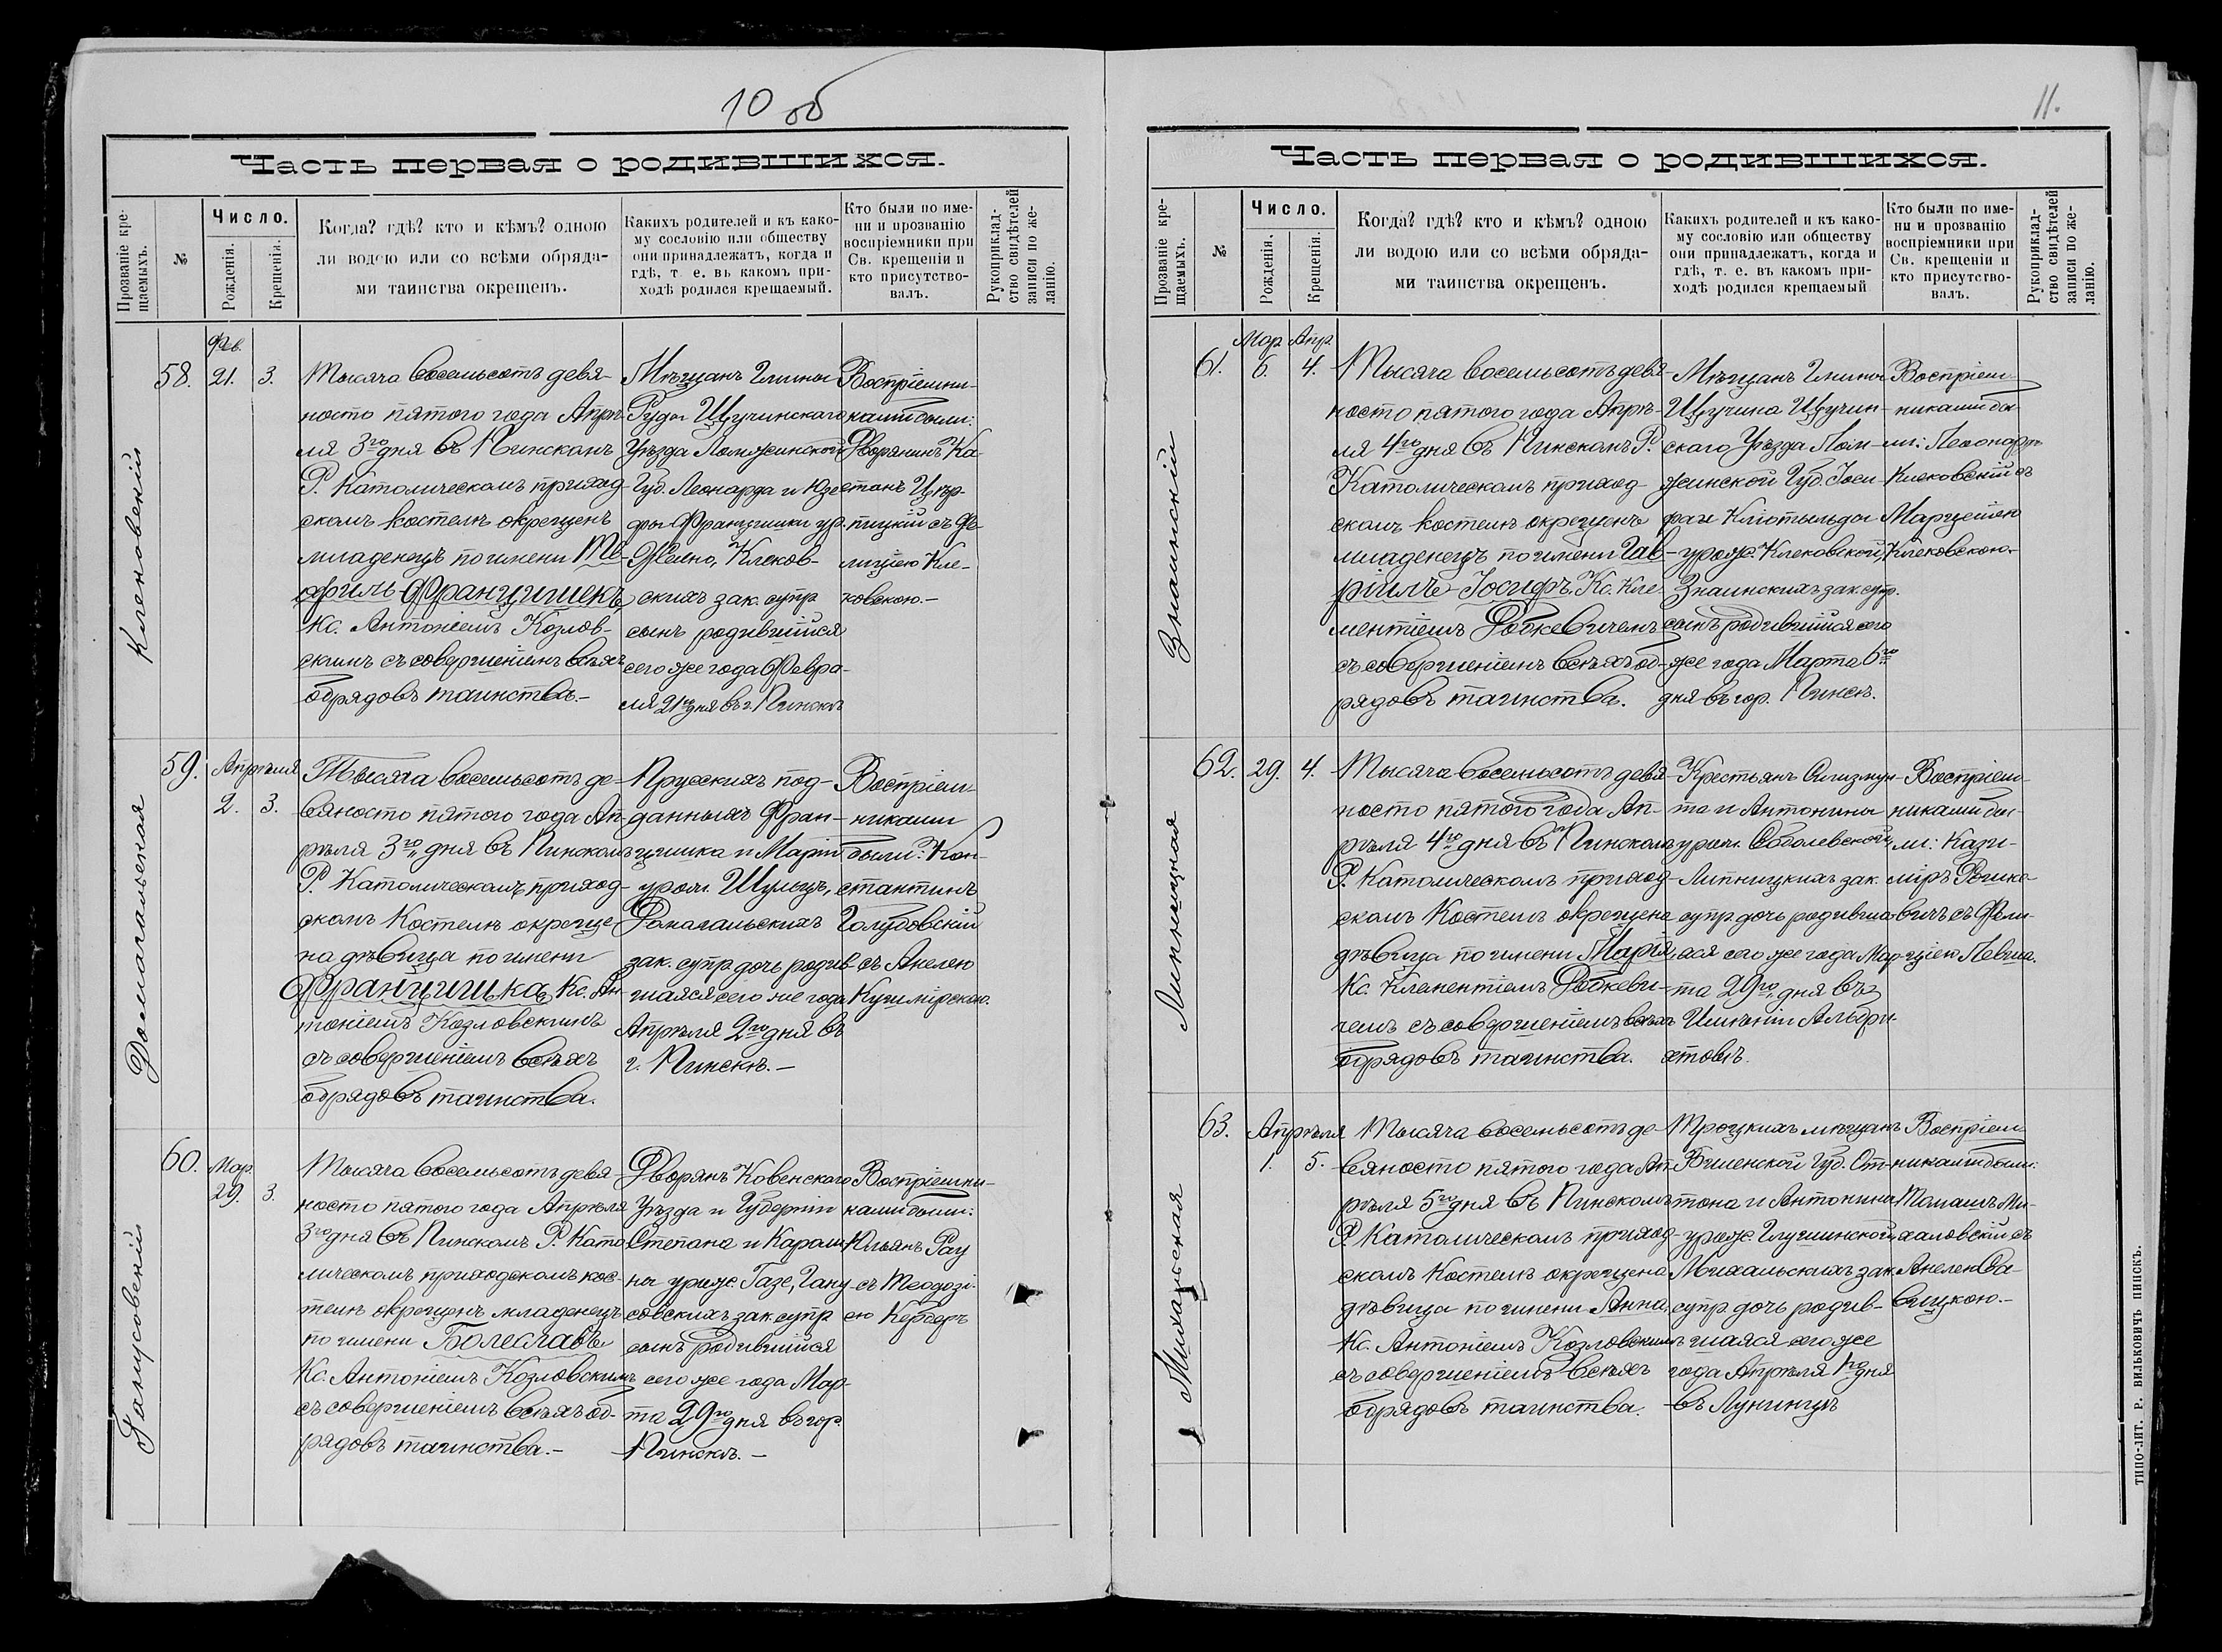 10 об
Часть первая о родившихся.
Прозваніе кре-
щаемыхъ.
№
Число.
Рожденія.
Крещенія.
Когда? гдѣ? кто и кѣмъ? одною
ли водою или со всѣми обряда-
ми таинства окрещенъ.
Какихъ родителей и къ како-
му сословію или обществу
они принадлежатъ, когда и
гдѣ, т. е. въ какомъ при-
ходѣ родился крещаемый.
Кто были по име-
ни и прозванію
воспріемники при
Св. крещеніи и
кто присутство-
валъ.
Рукоприклад-
ство свидѣтелей
записи по же-
ланію.
Клековскій
58.
Фев.
21.
3.
Тысяча восемьсотъ девя-
носто пятого года Апрѣ-
ля 3го дня въ Пинскомъ
Р. Католическомъ приход-
скомъ костелѣ окрещенъ
младенецъ по имени Те-
офиль-Францишекъ,
Кс. Антоніемъ Козлов-
скимъ съ совершеніемъ всѣхъ
обрядовъ таинства.-
Мѣщанъ Гмины
Руда Щучинскаго
Уѣзда Ломжинской
Губ. Леонарда и Юзе-
фы-Францишки ур.
Клеков-
скихъ зак. супр
сынъ родившійся
сего же года Февра-
ля 21го дня въ г. Пинскѣ
Воспріемни-
ками были:
Дворянинъ Ка-
етанъ Цѣр-
пицкій съ Фе-
лиціею Кле-
ковскою.-
Домагальская
59.
Апрѣля
2.
3.
Тысяча восемьсотъ де-
вяносто пятого года Ап-
рѣля 3го дня въ Пинскомъ
Р. Католическомъ приход-
скомъ Костелѣ окреще-
на дѣвица по имени
Францишка, Кс. Ан-
тоніемъ Козловскимъ
съ совершеніемъ всѣхъ
обрядовъ таинства.
Прусскихъ под-
данныхъ Фран-
цишка и Маріи
урож. Шульцъ,
Домагальскихъ
зак. супр. дочь родив-
шаяся сего же года
Апрѣля 2го дня въ
г. Пинскѣ.-
Воспріем-
никами
были: Кон-
стантинъ
Голубовскій
съ Анелею
Кушмірскою.
Ганусовскій
60.
Мар.
29.
3.
Тысяча восемьсотъ девя-
носто пятого года Апрѣля
3го дня въ Пинскомъ Р. Като-
лическомъ приходскомъ кос-
телѣ окрещенъ младенецъ
по имени Болеславъ
Кс. Антоніемъ Козловскимъ
съ совершеніемъ всѣхъ об-
рядовъ таинства.-
Дворянъ Ковенскаго
Уѣзда и Губерніи
Степана и Кароли-
ны урож. Газе, Гану-
совскихъ зак. супр
сынъ родившійся
сего же года Мар-
та 29го дня въ гор.
Пинскѣ.-
Воспріемни-
ками были:
Юльянъ Рау
съ Теодозі-
ею Керберъ
11.
Часть первая о родившихся.
Прозваніе кре-
щаемыхъ.
№
Число.
Рожденія.
Крещенія.
Когда? гдѣ? кто и кѣмъ? одною
ли водою или со всѣми обряда-
ми таинства окрещенъ.
Какихъ родителей и къ како-
му сословію или обществу
они принадлежатъ, когда и
гдѣ, т. е. въ какомъ при-
ходѣ родился крещаемый
Кто были по име-
ни и прозванію
воспріемники при
Св. крещеніи и
кто присутство-
валъ.
Рукоприклад-
ство свидѣтелей
записи по же-
ланію.
Знаинскій
61.
Мар
6.
Апр
4.
Тысяча восемьсотъ девя-
носто пятого года Апрѣ-
ля 4го дня въ Пинскомъ Р.
Католическомъ приход-
скомъ костелѣ окрещенъ
младенецъ по имени Гав-
ріилъ-Іосифъ, Кс. Кле-
ментіемъ Родкевичемъ
съ совершеніемъ всѣхъ об-
рядовъ таинства.
Мѣщанъ Гмины
Щучина Щучин-
скаго Уѣзда Лом-
жинской Губ. Іоси-
фа и Клотыльды
урож. Клековской,
Знаинскихъ зак. супр.
сынъ родившійся сего
же года Марта 6го
дня въ гор. Пинск.
Воспріем-
никами бы-
ли: Леонардъ
Клековскій съ
Марцелею
Клековскою.
Липницкая
62.
29.
4.
Тысяча восемьсотъ девя-
носто пятого года Ап-
рѣля 4го дня въ Пинскомъ
Р. Католическомъ приход-
скомъ Костелѣ окрещена
дѣвица по имени Марія,
Кс. Климентіемъ Родкеви-
чемъ съ совершеніемъ всѣхъ
обрядовъ таинства.
Крестьянъ Сигизмун-
та и Антонины
урож. Соболевской,
Липницкихъ зак.
супр. дочь родивша-
аяся сего же года Мар-
та 29го дня въ
Имѣніи Альбри-
хтовѣ.
Воспріем-
никами бы-
ли: Кази-
міръ
съ Фели-
ціею Левша.
Михальская
63.
Апрѣля
1.
5.
Тысяча восемьсотъ де-
вяносто пятого года Ап-
рѣля 5го дня въ Пинскомъ
Р. Католическомъ приход-
скомъ Костелѣ окрещена
дѣвица по имени Анна,
Кс. Антоніемъ Козловскимъ
съ совершеніемъ всѣхъ
обрядовъ таинства.
Троцкихъ мѣщанъ
Виленской Губ. Ан-
тона и Антонины
урож. Глушинской
Михальскихъ зак.
супр. дочь родив-
шаяся сего же
года Апрѣля 1го дня
въ Лунинцѣ
Воспріем-
никами были:
Томашъ Ми-
халовскій съ
Анелею Са-
вицкою.-
ТИПО-ЛИТ. Р. ВИЛЬКОВИЧЪ ПИНСКЪ.